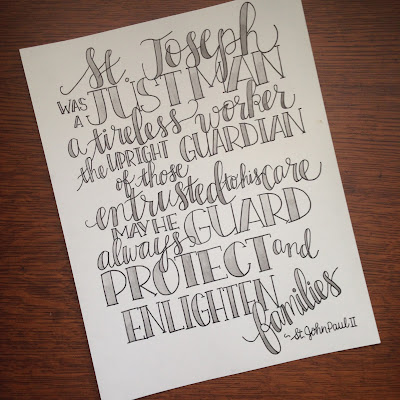 St. Joseph
WAS A JUST MAN
a tireless worker
the UPRIGHT GUARDIAN
of those
entrusted to his care
MAY HE
always GUARD
PROTECT and
ENLIGHTEN
families
~ St. John Paul II